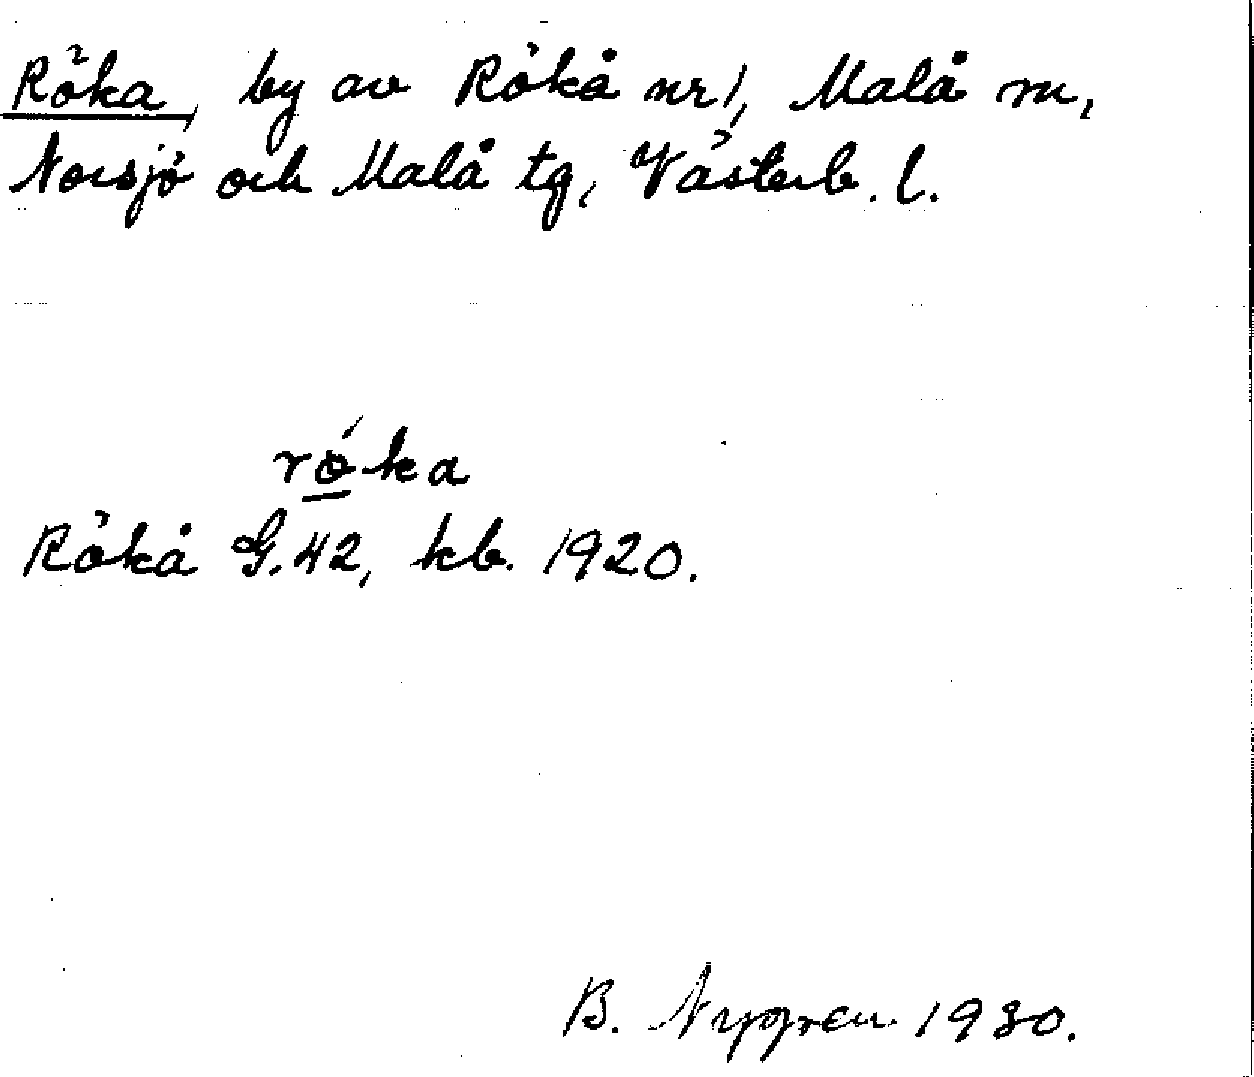 Röka, by av Rökå nr 1, Malå sn,
Norsjö och Malå tg, Västerb. l.
rö́ka
Rökå G. 42, kb. 1920.
B. Nygren 1930.